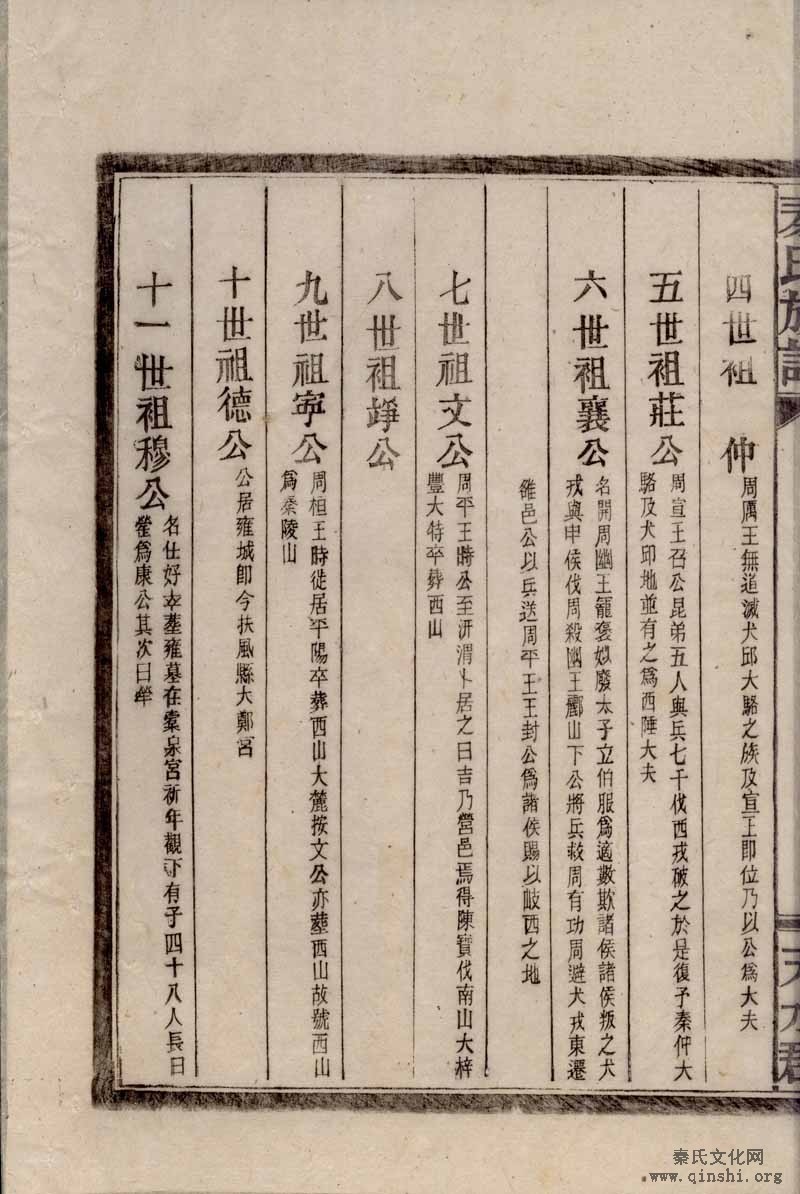 秦氏族譜
天水郡
四世祖 仲 周厲王無道滅犬邱大駱之族及宣王即位乃以公爲大夫
五世祖莊公 周宣王召公昆弟五人與兵七千伐西戎破之於是復予秦仲大
駱及犬邱地並有之爲西陲大夫
六世祖襄公 名開周幽王寵褒姒廢太子立伯服爲適數欺諸侯諸侯叛之犬
戎與申侯伐周殺幽王酈山下公將兵救周有功周避犬戎東遷
雒邑公以兵送周平王王封公爲諸侯賜以岐西之地
七世祖文公 周平王時公至汧渭卜居之曰吉乃營邑焉得陳寶伐南山大梓
豐大特卒葬西山
八世祖竫公
九世祖寕公 周桓王時徙居平陽卒葬西山大麓按文公亦塟西山故號西山
爲秦陵山
十世祖德公 公居雍城卽今扶風縣大鄭宮
十一世祖穆公 名任好卒塟雍墓在槖泉宮祈年觀下有子四十八人長曰
罃爲康公其次曰
秦氏文化网
www.qinshi.org